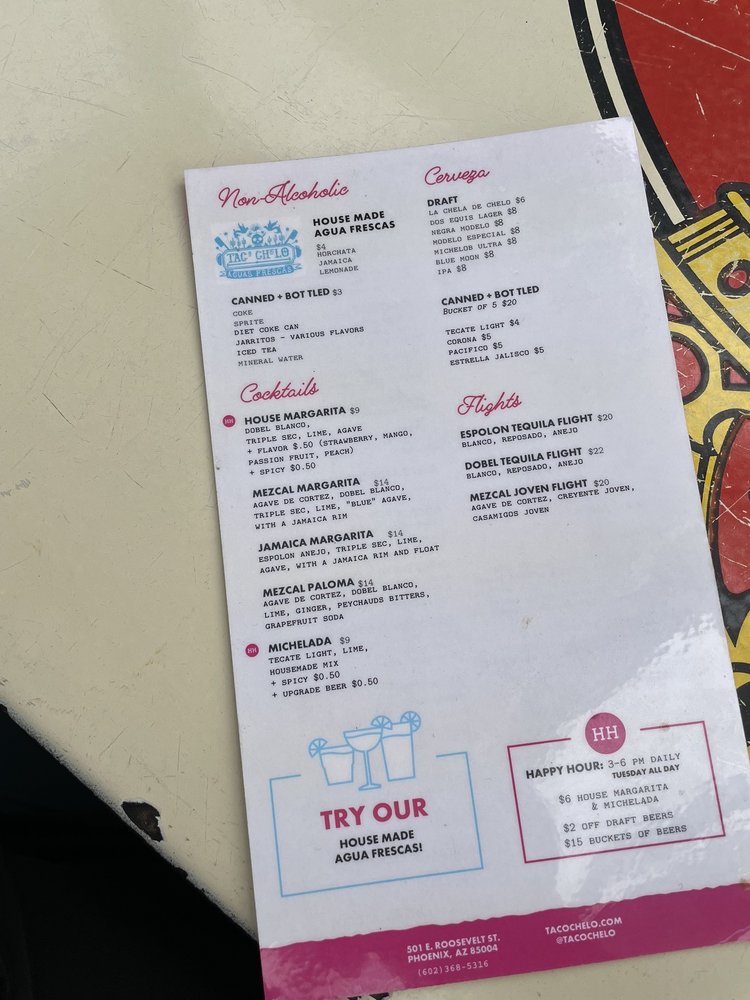 Non-Alcoholic
TACO CHELO
AGUAS FRESCAS
HOUSE MADE
AGUA FRESCAS
$4
HORCHATA
JAMAICA
LEMONADE
CANNED + BOT TLED $3
COKE
SPRITE
DIET COKE CAN
JARRITOS - VARIOUS FLAVORS
ICED TEA
MINERAL WATER
Cocktails
HH
HOUSE MARGARITA $9
DOBEL BLANCO,
TRIPLE SEC, LIME, AGAVE
+ FLAVOR $.50 (STRAWBERRY, MANGO,
PASSION FRUIT, PEACH)
+ SPICY $0.50
MEZCAL MARGARITA $14
AGAVE DE CORTEZ, DOBEL BLANCO,
TRIPLE SEC, LIME, "BLUE" AGAVE,
WITH A JAMAICA RIM
JAMAICA MARGARITA $14
ESPOLON ANEJO, TRIPLE SEC, LIME,
AGAVE, WITH A JAMAICA RIM AND FLOAT
MEZCAL PALOMA $14
AGAVE DE CORTEZ, DOBEL BLANCO,
LIME, GINGER, PEYCHAUDS BITTERS,
GRAPEFRUIT SODA
HH
MICHELADA $9
TECATE LIGHT, LIME,
HOUSEMADE MIX
+ SPICY $0.50
+ UPGRADE BEER $0.50
Cerveza
DRAFT
LA CHELA DE CHELO $6
DOS EQUIS LAGER $8
NEGRA MODELO $8
MODELO ESPECIAL $8
MICHELOB ULTRA $8
BLUE MOON $8
IPA $8
CANNED + BOT TLED
BUCKET OF 5 $20
TECATE LIGHT $4
CORONA $5
PACIFICO $5
ESTRELLA JALISCO $5
Flights
ESPOLON TEQUILA FLIGHT $20
BLANCO, REPOSADO, ANEJO
DOBEL TEQUILA FLIGHT $22
BLANCO, REPOSADO, ANEJO
MEZCAL JOVEN FLIGHT $20
AGAVE DE CORTEZ, CREYENTE JOVEN,
CASAMIGOS JOVEN
TRY OUR
HOUSE MADE
AGUA FRESCAS!
HH
HAPPY HOUR: 3-6 PM DAILY
TUESDAY ALL DAY
$6 HOUSE MARGARITA
& MICHELADA
$2 OFF DRAFT BEERS
$15 BUCKETS OF BEERS
501 E. ROOSEVELT ST.
PHOENIX, AZ 85004
(602)368-5316
TACOCHELO.COM
@TACOCHELO